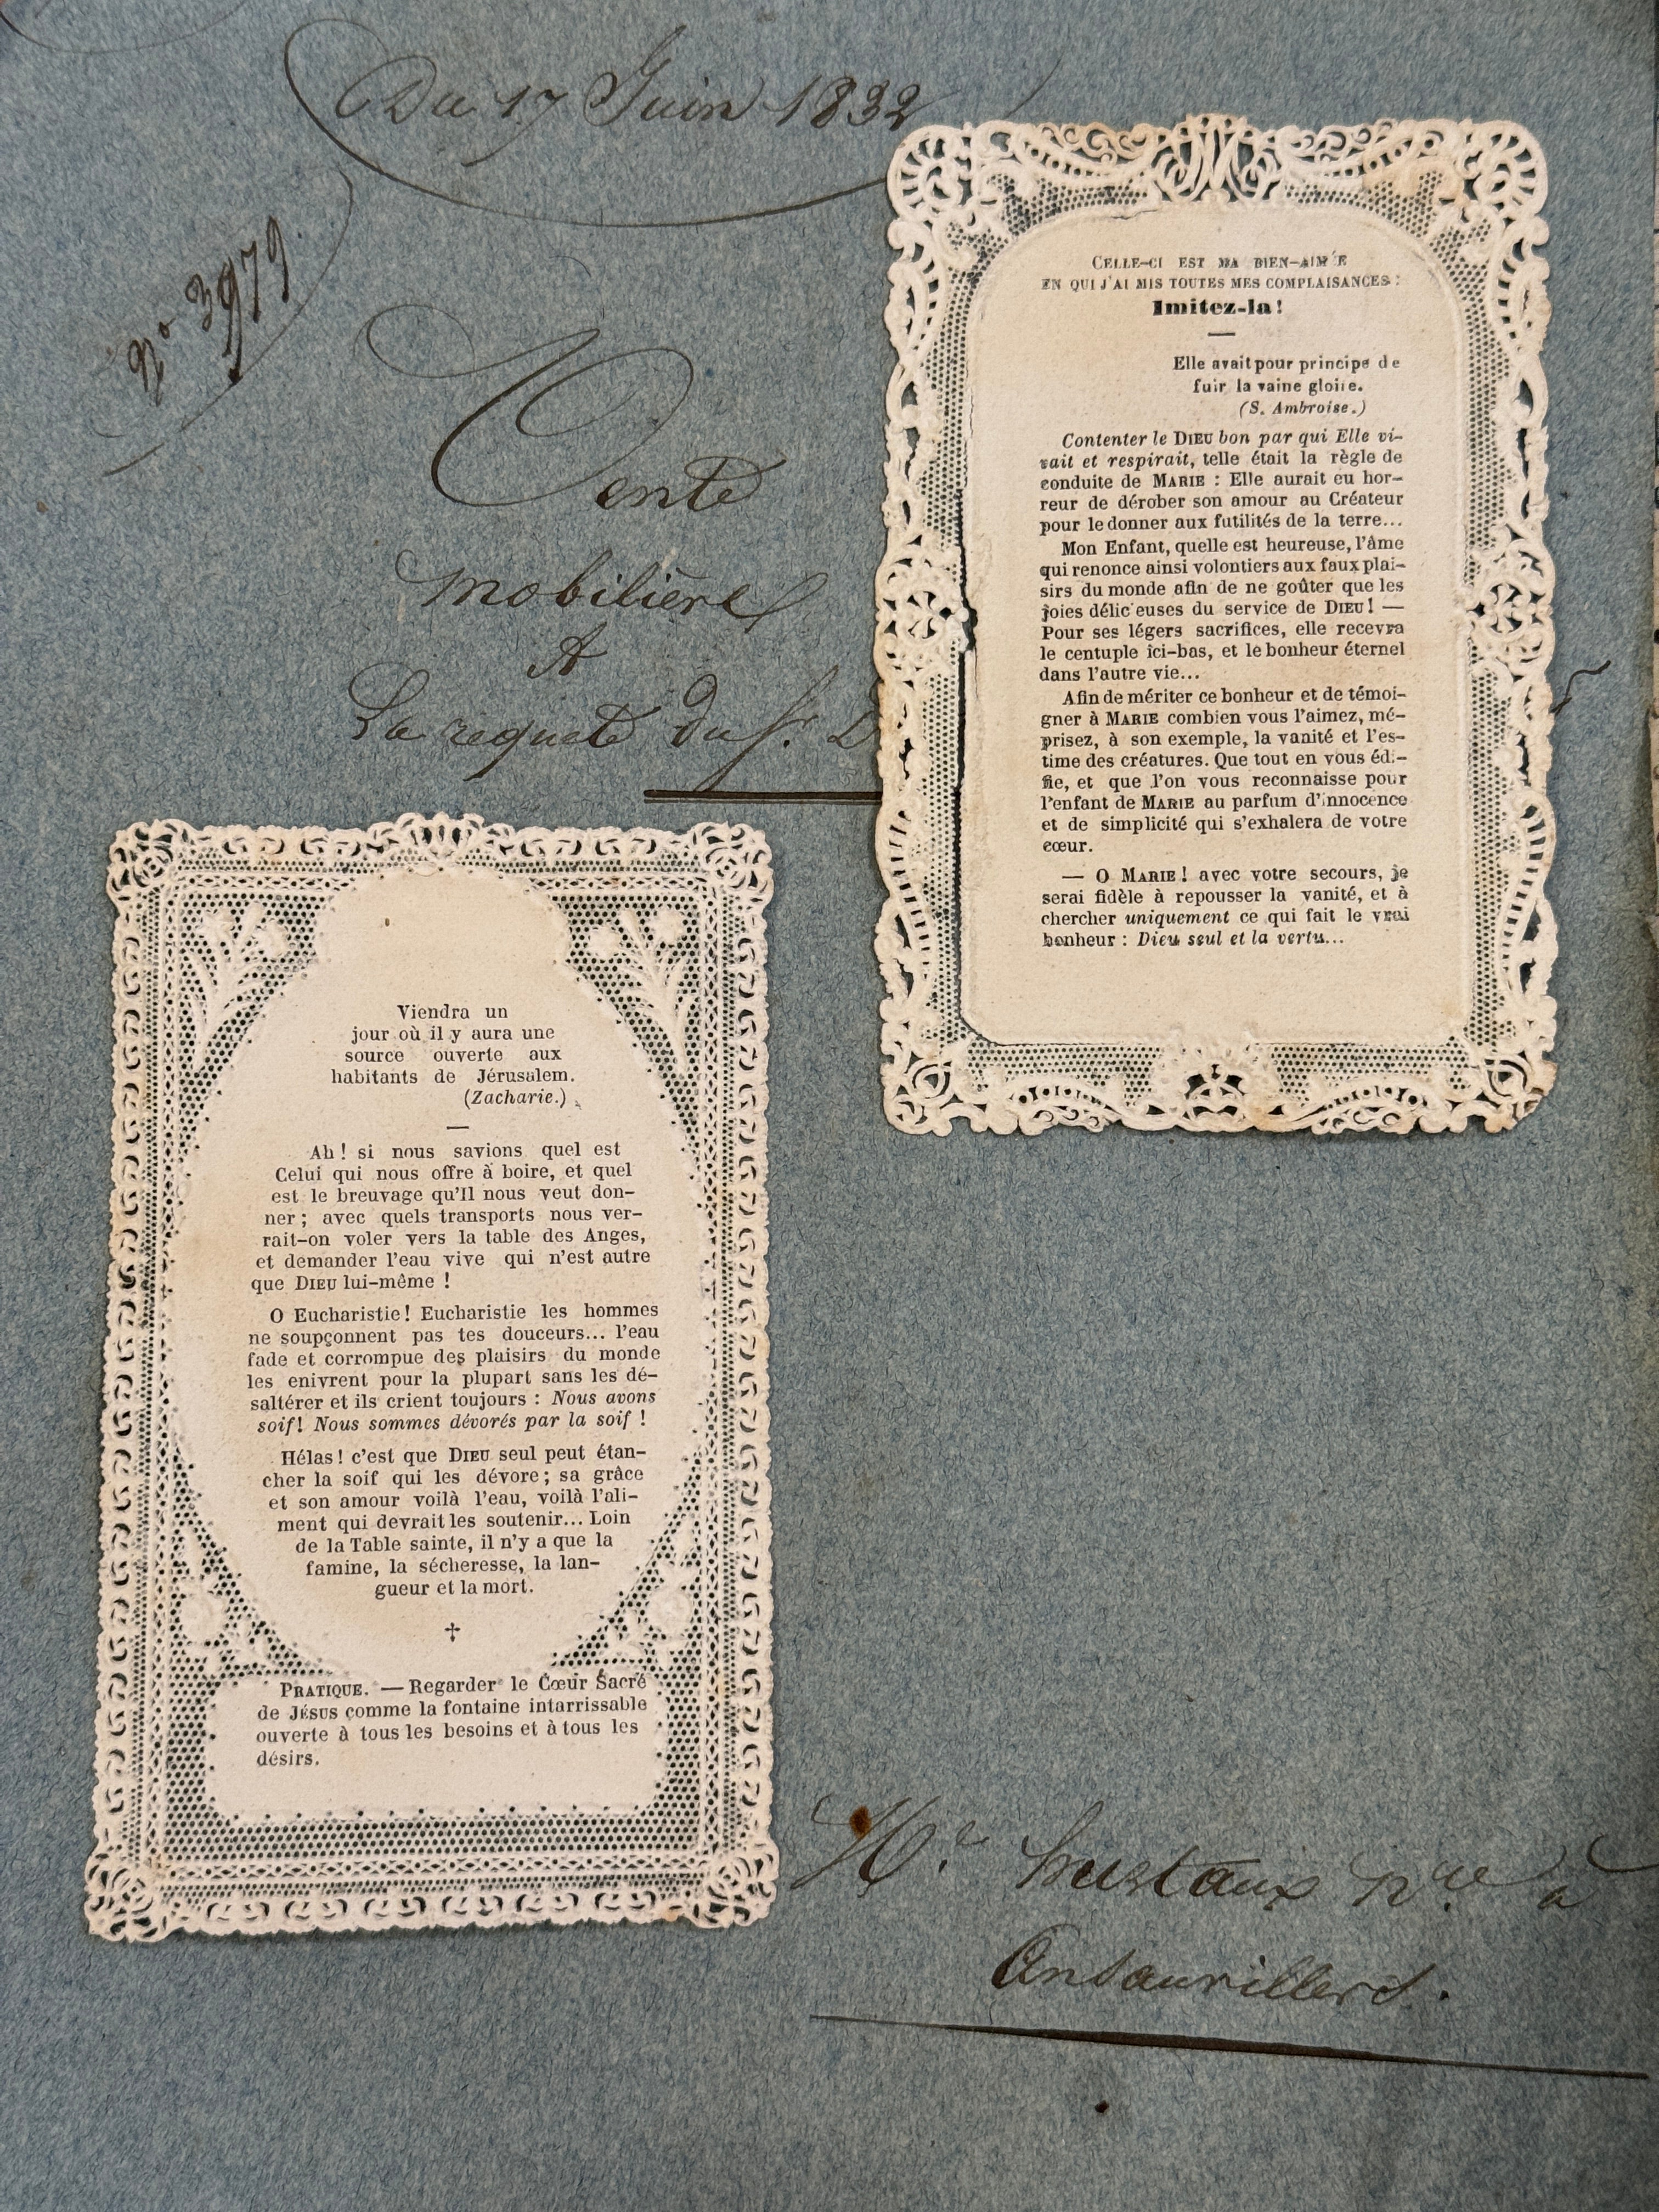 Du 17 Juin 1832
No 3979
Vente
mobilière
A
La requete du Sr. D
CELLE-CI EST MA BIEN-AIM'E
EN QUI J'AI MIS TOUTES MES COMPLAISANCES :
Imitez-la!
—
Elle avait pour principe de
fuir la vaine gloire.
(S. Ambroise.)
Contenter le DIEU bon par qui Elle vi-
vait et respirait, telle était la règle de
conduite de MARIE : Elle aurait eu hor-
reur de dérober son amour au Créateur
pour le donner aux futilités de la terre...
Mon Enfant, quelle est heureuse, l'âme
qui renonce ainsi volontiers aux faux plai-
sirs du monde afin de ne goûter que les
joies délic euses du service de DIEU! —
Pour ses légers sacrifices, elle recevra
le centuple ici-bas, et le bonheur éternel
dans l'autre vie...
Afin de mériter ce bonheur et de témoi-
gner à MARIE combien vous l'aimez, mé-
prisez, à son exemple, la vanité et l'es-
time des créatures. Que tout en vous édi-
fie, et que l'on vous reconnaisse pour
l'enfant de MARIE au parfum d'innocence
et de simplicité qui s'exhalera de votre
cœur.
— O MARIE! avec votre secours, je
serai fidèle à repousser la vanité, et à
chercher uniquement ce qui fait le vrai
bonheur : Dieu seul et la vertu...
Viendra un
jour où il y aura une
source ouverte aux
habitants de Jérusalem.
(Zacharie.)
—
Ah! si nous savions quel est
Celui qui nous offre à boire, et quel
est le breuvage qu'Il nous veut don-
ner; avec quels transports nous ver-
rait-on voler vers la table des Anges,
et demander l'eau vive qui n'est autre
que DIEU lui-même!
O Eucharistie! Eucharistie les hommes
ne soupçonnent pas tes douceurs... l'eau
fade et corrompue des plaisirs du monde
les enivrent pour la plupart sans les dé-
saltérer et ils crient toujours : Nous avons
soif! Nous sommes dévorés par la soif!
Hélas! c'est que DIEU seul peut étan-
cher la soif qui les dévore; sa grâce
et son amour voilà l'eau, voilà l'ali-
ment qui devrait les soutenir... Loin
de la Table sainte, il n'y a que la
famine, la sécheresse, la lan-
gueur et la mort.
†
PRATIQUE. — Regarder le Cœur Sacré
de JÉSUS comme la fontaine intarrissable
ouverte à tous les besoins et à tous les
désirs.
Me nre à
Ansauvillers.